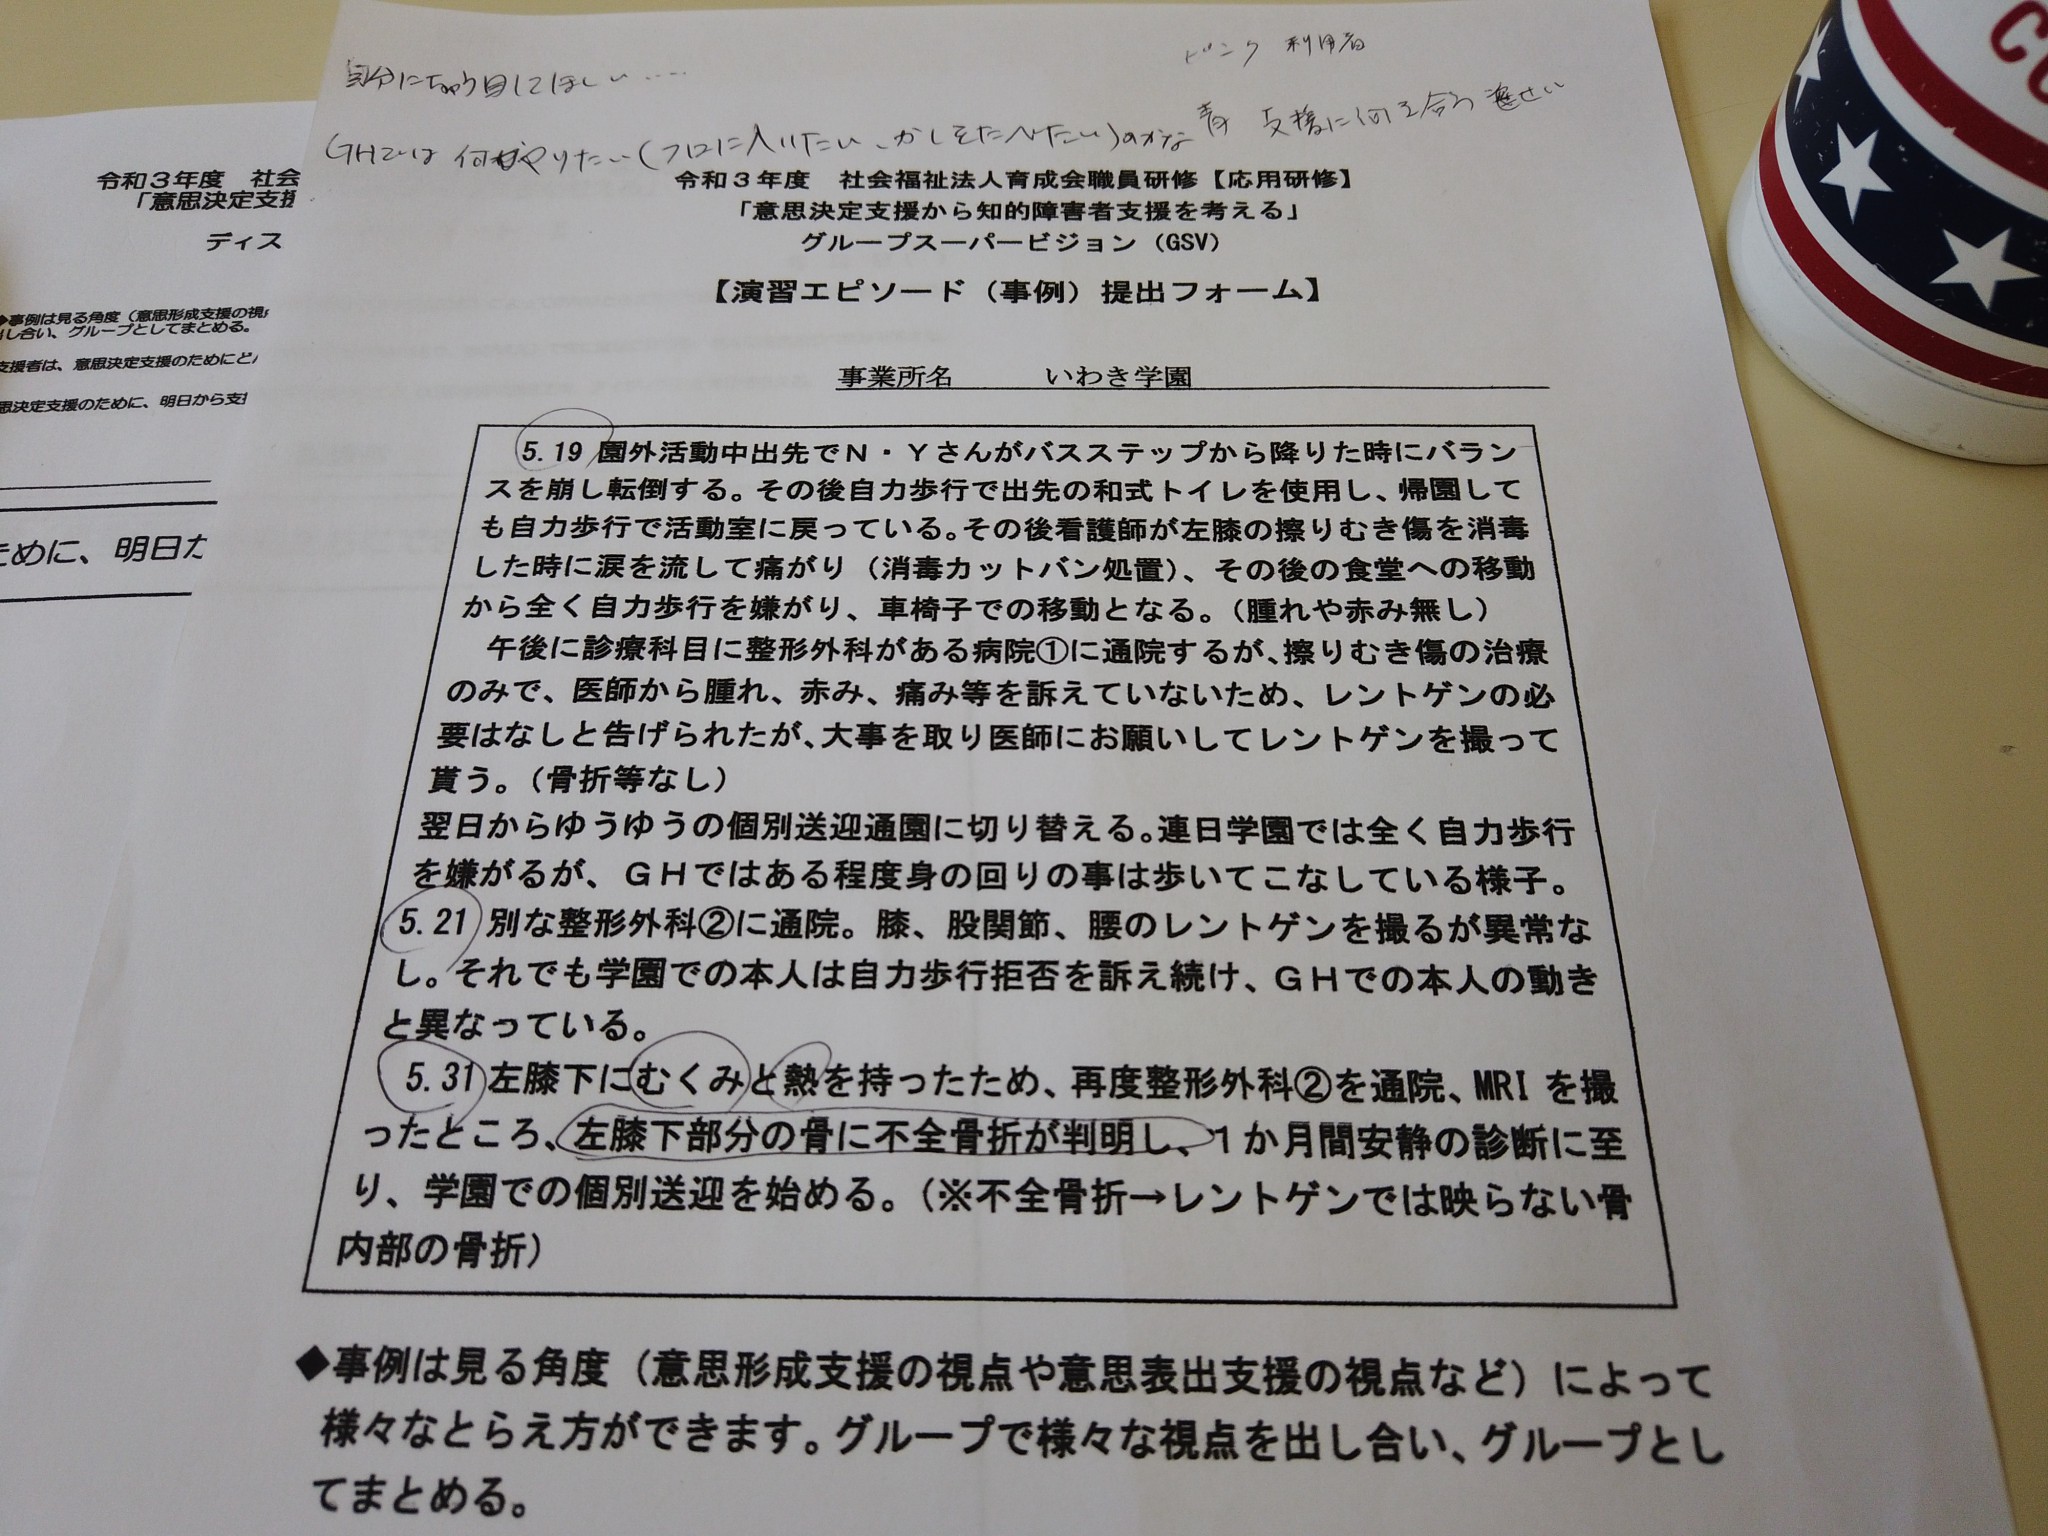 自分にちゅう目してほしい.....
ピンク 利用者
GHでは 何かやりたい(フロに入りたい、かしをたべたい)のかな
青 支援に何を
令和3年度 社会
「意思決定支援
ディス
◆事例は見る角度（意思形成支援の視点
出し合い、グループとしてまとめる。
支援者は、意思決定支援のためにど
思決定支援のために、明日から支援
ために、明日か
令和３年度　社会福祉法人育成会職員研修【応用研修】
「意思決定支援から知的障害者支援を考える」
グループスーパービジョン（GSV）
【演習エピソード（事例）提出フォーム】
事業所名　　　いわき学園
5.19 園外活動中出先でＮ・Ｙさんがバスステップから降りた時にバラン
スを崩し転倒する。その後自力歩行で出先の和式トイレを使用し、帰園して
も自力歩行で活動室に戻っている。その後看護師が左膝の擦りむき傷を消毒
した時に涙を流して痛がり（消毒カットバン処置）、その後の食堂への移動
から全く自力歩行を嫌がり、車椅子での移動となる。（腫れや赤み無し）
午後に診療科目に整形外科がある病院①に通院するが、擦りむき傷の治療
のみで、医師から腫れ、赤み、痛み等を訴えていないため、レントゲンの必
要はなしと告げられたが、大事を取り医師にお願いしてレントゲンを撮って
貰う。（骨折等なし）
翌日からゆうゆうの個別送迎通園に切り替える。連日学園では全く自力歩行
を嫌がるが、ＧＨではある程度身の回りの事は歩いてこなしている様子。
5.21 別な整形外科②に通院。膝、股関節、腰のレントゲンを撮るが異常な
し。それでも学園での本人は自力歩行拒否を訴え続け、ＧＨでの本人の動き
と異なっている。
5.31 左膝下にむくみと熱を持ったため、再度整形外科②を通院、MRI を撮
ったところ、左膝下部分の骨に不全骨折が判明し、１か月間安静の診断に至
り、学園での個別送迎を始める。（※不全骨折→レントゲンでは映らない骨
内部の骨折）
◆事例は見る角度（意思形成支援の視点や意思表出支援の視点など）によって
様々なとらえ方ができます。グループで様々な視点を出し合い、グループとし
てまとめる。